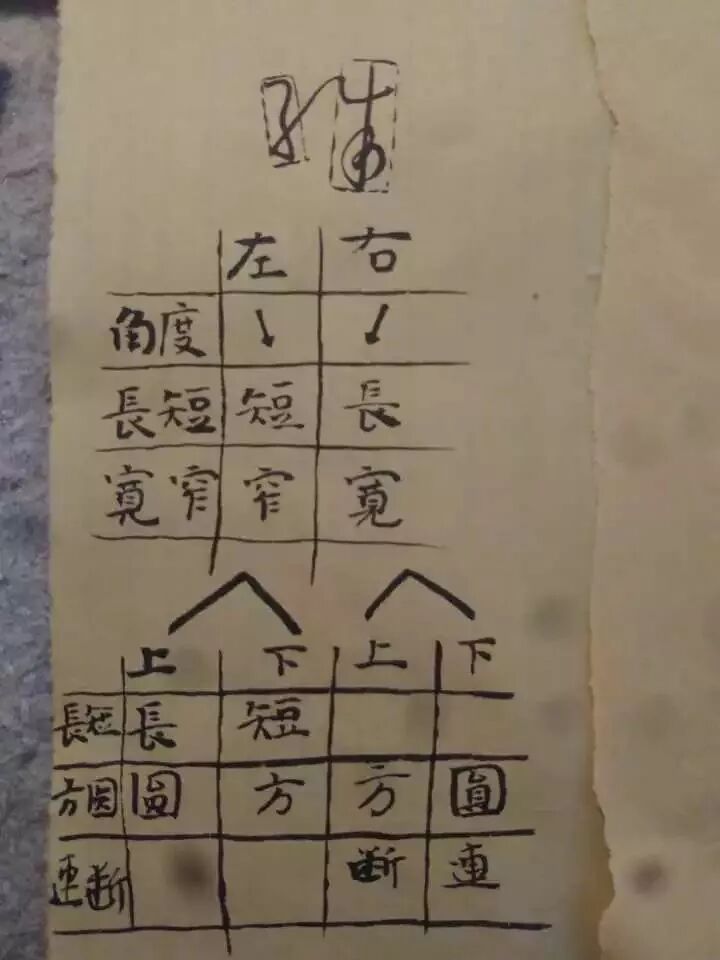 左 右
角度 ↘ ↙
長短 短 長
寬窄 窄 寬
上 下 上 下
長短 長 短
方圆 圓 方 方 圓
連断 断 連